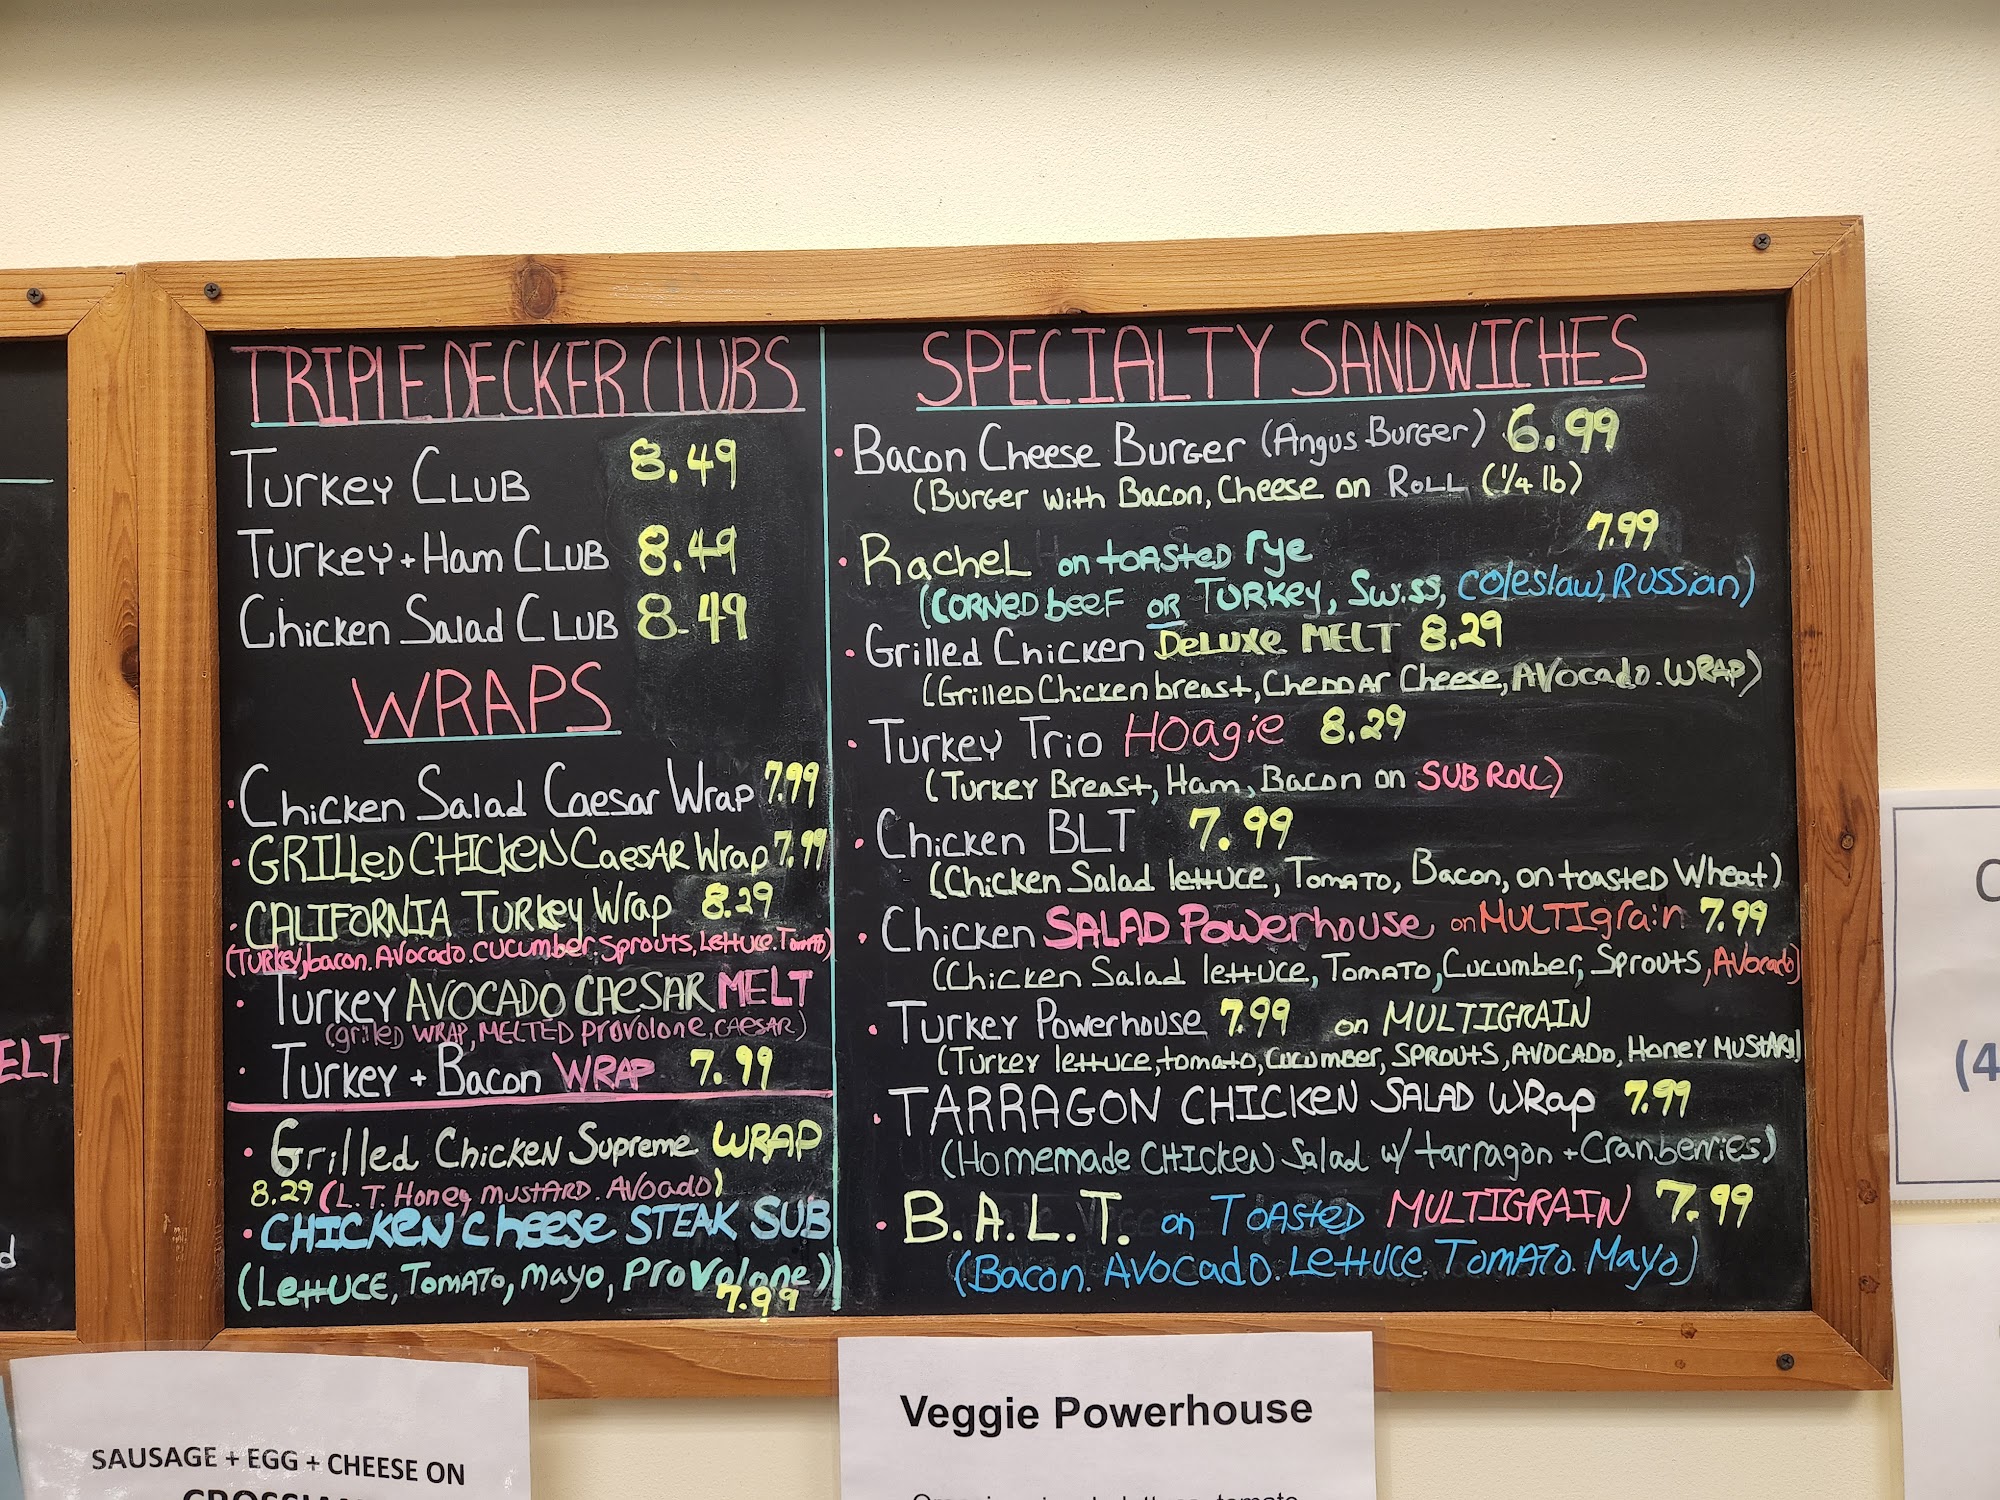 TRIPLE DECKER CLUBS
Turkey CLUB 8.49
Turkey + Ham CLUB 8.49
Chicken Salad CLUB 8.49
WRAPS
• Chicken Salad Caesar Wrap 7.99
• GRILLED CHICKEN CaesAR Wrap 7.99
• CALIFORNIA Turkey Wrap 8.29
(Turkey, bacon. Avocado. cucumber. Sprouts, Lettuce. Tomato)
• Turkey AVOCADO CAESAR MELT
(grilled WRAP, MELTED Provolone, CAESAR)
• Turkey + Bacon WRAP 7.99
• Grilled Chicken Supreme WRAP
8.29 (L.T. Honey MUSTARD. AVOcADO)
• CHICKEN cheese STEAK SUB
(LETTUCE, TOMATO, mayo, Provolone)
7.99
SPECIALTY SANDWICHES
• Bacon Cheese Burger (Angus Burger) 6.99
(Burger with Bacon, Cheese on ROLL (1/4 lb)
• Rachel on toasted rye 7.99
(CORNED beeF or TURKEY, Swiss, coleslaw, Russian)
• Grilled Chicken DeLuxe MELT 8.29
(Grilled Chicken breast, CHEDDAR Cheese, AVocado. WRAP)
• Turkey Trio Hoagie 8.29
(Turkey Breast, Ham, Bacon on SUB ROLL)
• Chicken BLT 7.99
(Chicken Salad lettuce, Tomato, Bacon, on toasted Wheat)
• Chicken SALAD Powerhouse on MULTIgrain 7.99
(Chicken Salad lettuce, Tomato, Cucumber, Sprouts, Avocado)
• Turkey Powerhouse 7.99 on MULTIGRAIN
(Turkey lettuce, tomato, cucumber, SPROUTS, AVOCADO, Honey MUSTARD)
• TARRAGON CHICKEN SALAD WRap 7.99
(Homemade CHICKEN Salad w/ tarragon + Cranberries)
• B.A.L.T. on TOASTED MULTIGRAIN 7.99
(Bacon. AVOCADO. LETTUCE. TOMATO. Mayo)
ELT
d
SAUSAGE + EGG + CHEESE ON
Veggie Powerhouse
(4